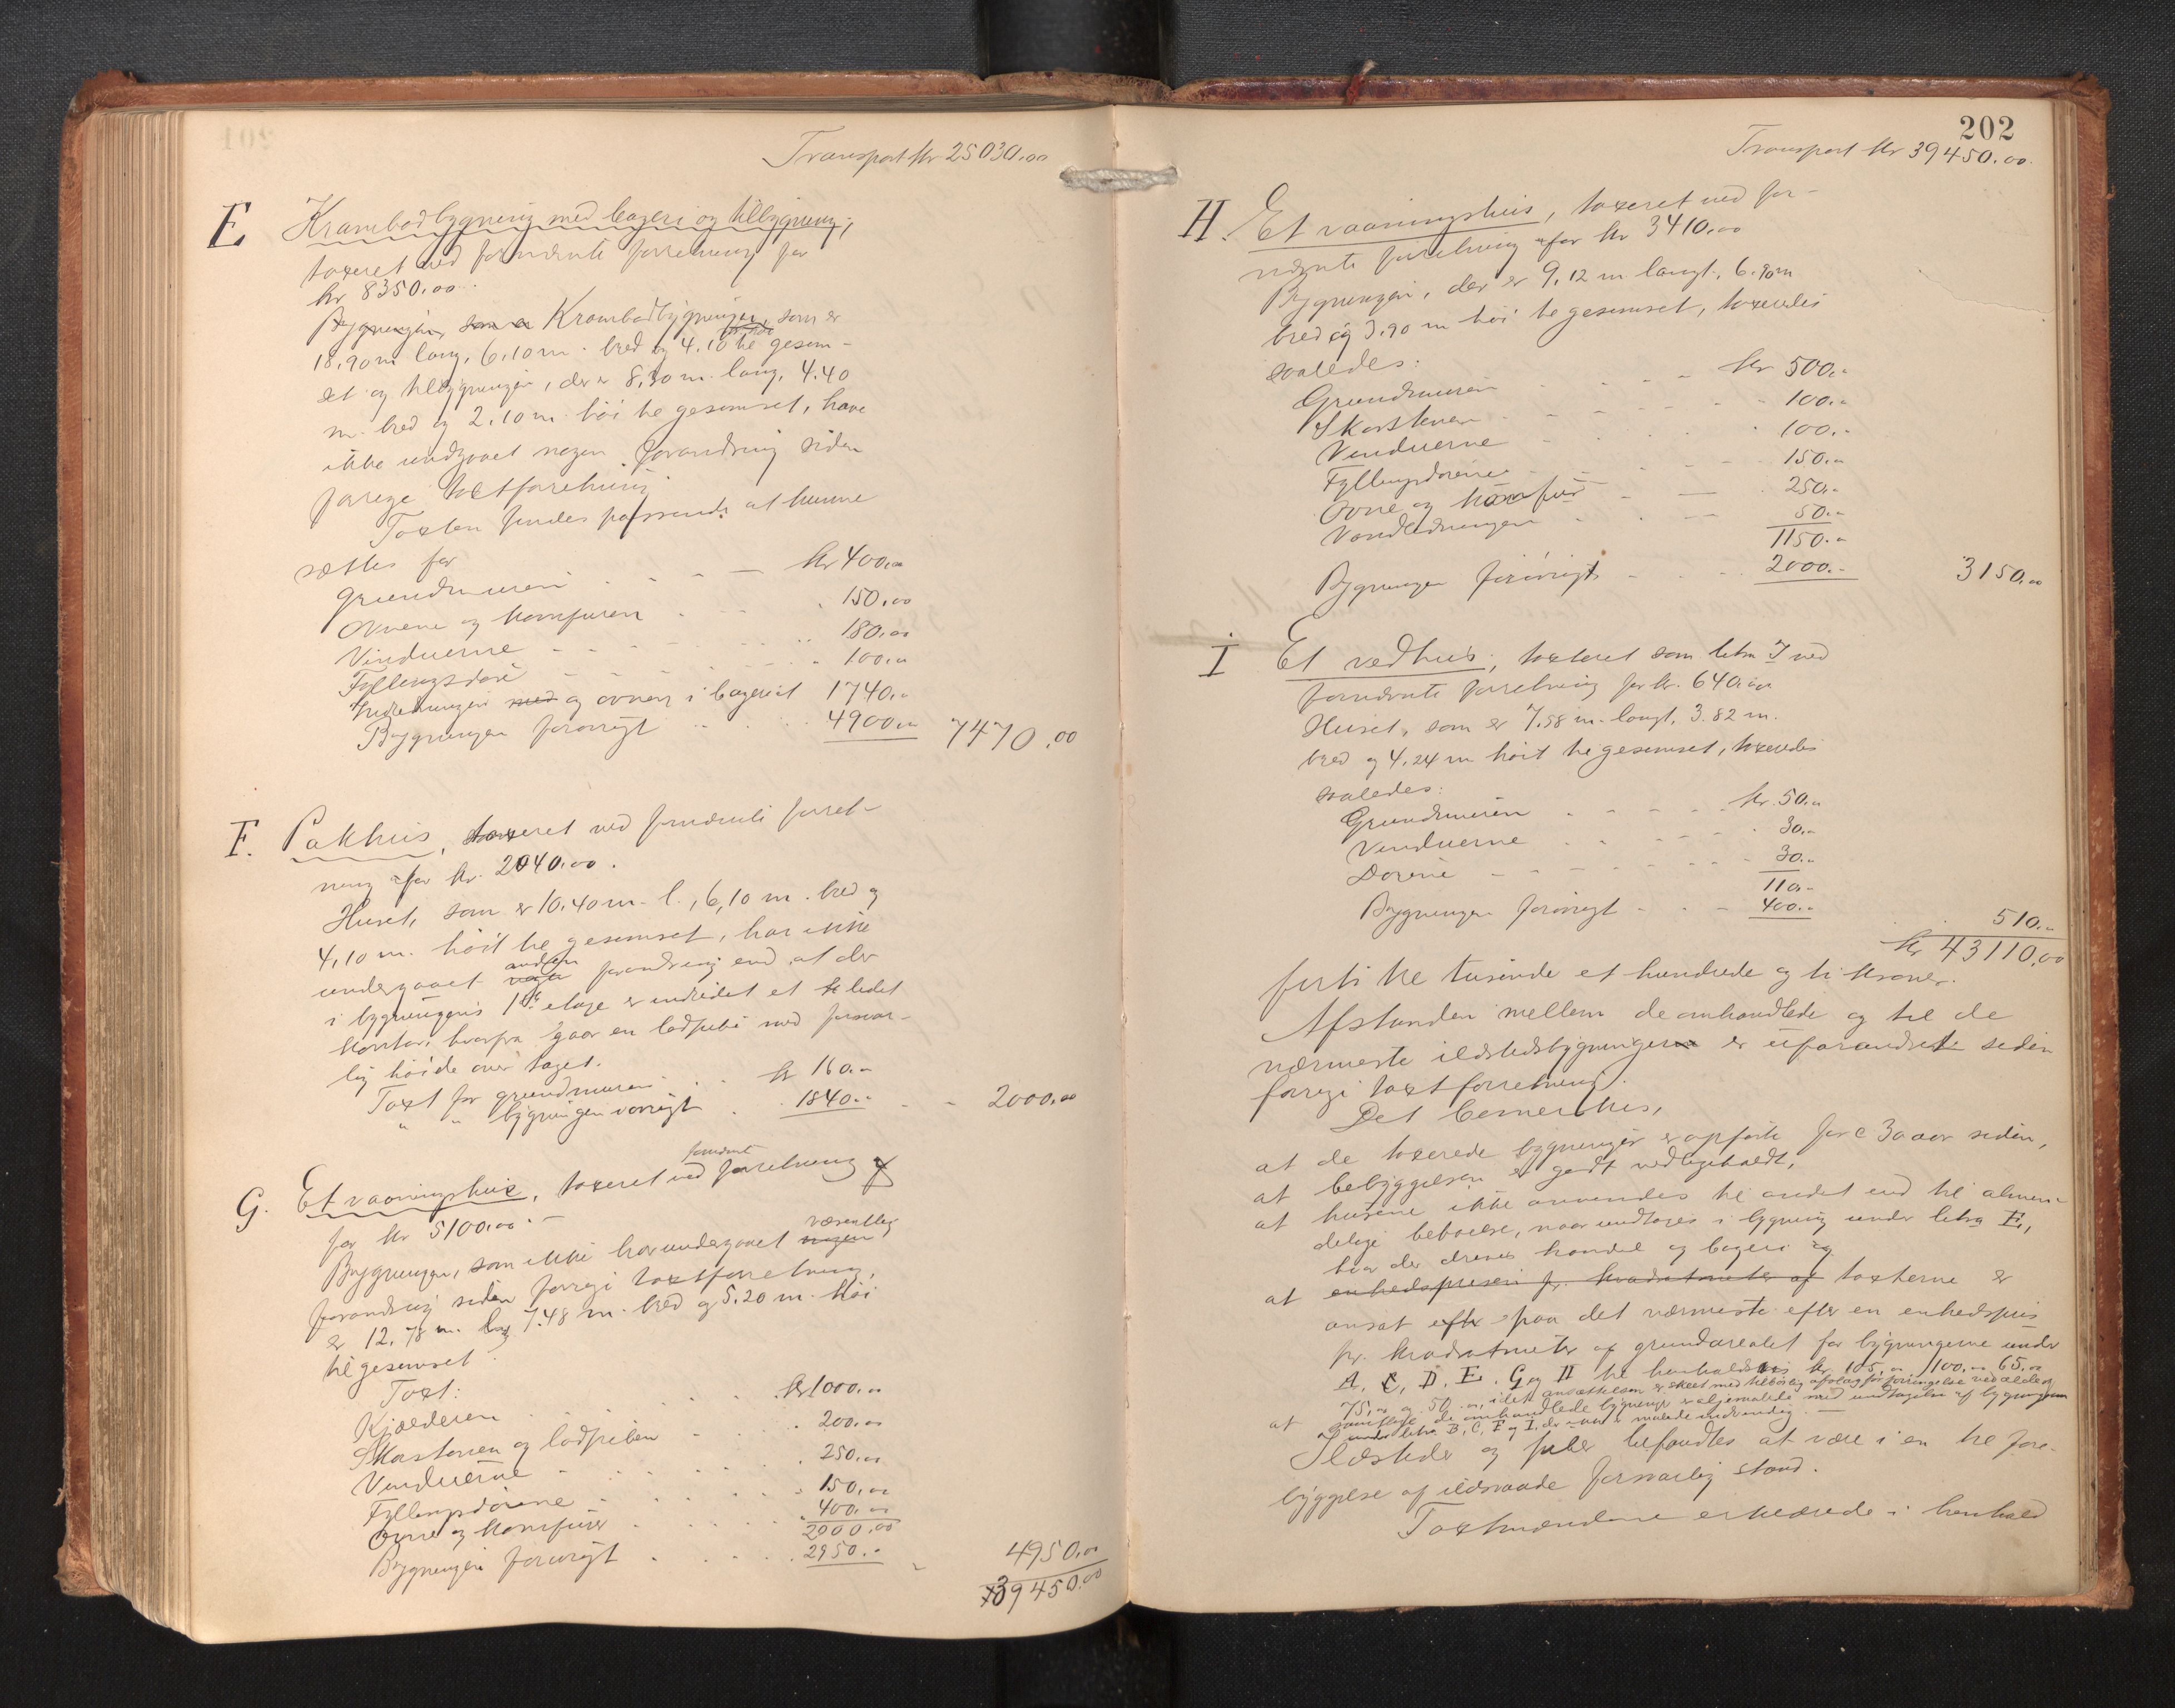 Transport kr 25030.00
E Krambodbygning med bageri og tilbygning,
taxeret ved formdnte forretning for
kr 8350.00.
Bygningen, som er Krambodbygningen, som er
18.90 m lang, 6.10 m. bred og 4.10 høi til gesim-
set og tilbygningen, der er 8,30 m. lang, 4.40
m. bred og 2.10 m. høi til gesimset, have
ikke undgaaet nogen forandring siden
forrige taxtforretning.
Taxten findes passende at kunne
sættes for
Grundmuren kr 400.00
Ovnene og komfuren 150.00
Vinduerne 180.00
Fyllingsdøre 100.00
Indretningen med og ovnen i bageriet 1740.00
Bygningen forøvrigt 4900.00 7470.00
F. Pakhus, taxeret ved formdnte forret-
ning for kr. 2040.00.
Huset, som er 10.40 m. l., 6,10 m. bred og
4,10 m. høit til gesimset, har ikke
undergaaet nogen anden forandring end at der
i bygningens 1ste etage er indredet et lidet
kontor, hvorfra gaar en lodpibe med forsvar-
lig høide over taget.
Taxt for grundmuren kr 160.00
" " bygningen øvrigt 1840.00 2000.00
G. Et vaaningshus, taxeret ved formdnte forretning
for kr 5100.00. -
Bygningen, som ikke har undergaaet nogen væsentlig
forandring siden forrige taxtforretning,
er 12,78 m. lang 7.48 m. bred og 5.20 m. høi
til gesimset.
Taxt:
Kjælderen kr 1000.00
Skorstenen og lodpiben 200.00
Vinduerne 250.00
Fyllingsdørene 150.00
Ovne og komfurer 400.00
2000.00
Bygningen forøvrigt 2950.00 4950.00
39450.00
202
Transport kr 39450.00.
H. Et vaaningshus, taxeret ved for-
nævnte forretning for kr 3410.00
Bygningen, der er 9,12 m langt, 6.90 m
bred og 3,90 m høi til gesimset, taxeredes
saaledes:
Grundmuren kr 500.00
Skorstenen 100.00
Vinduerne 100.00
Fyllingsdørene 150.00
Ovne og komfur 250.00
Vandledningen 50.00
1150.00
Bygningen forøvrigt 2000.00 3150.00
I Et vedhus, taxeret som litra I ved
formdnte forretning for kr. 640.00
Huset, som er 7,58 m. langt, 3.82 m.
bred og 4,24 m høit til gesimset, taxeredes
saaledes:
Grundmuren kr. 50.00
Vinduerne 30.00
Dørene 30.00
110.00
Bygningen forøvrigt 400.00 510.00
kr 43110.00
førti tre tusinde et hundrede og ti kroner.
Afstanden mellem de omhandlede og til de
nærmeste ildstedsbygninger er uforandret siden
forrige taxtforretning.
Det bemerkes,
at de taxerede bygninger er opførte for c 30 aar siden,
at bebyggelsen er godt vedligeholdt,
at husene ikke anvendes til andet end til almin-
delige beboelse, naar undtages i bygning under litra E,
hvor der drives handel og bageri og
at enhedsprisen pr. kvadratmeter af taxterne er
ansat efter paa det nærmeste efter en enhedspris
pr. kvadratmeter af grundarealet for bygningerne under
A, C, D, E, G og H til henholdsvis kr. 105,00 100.00 65.00
75,00 og 50.00, idet ansættelsen er skeet med tilbørlig afslag for forringelse ved ælde og
at samtlige de omhandlede bygninger er oljemalede med undtagelse af bygningerne
under litra B, C, F og I, der ikke er malede indvendig.
Ildsteder og piber befandtes at være i en til fore-
byggelse af ildsvaade forsvarlig stand.
Taxtmændene erklærede i henhold